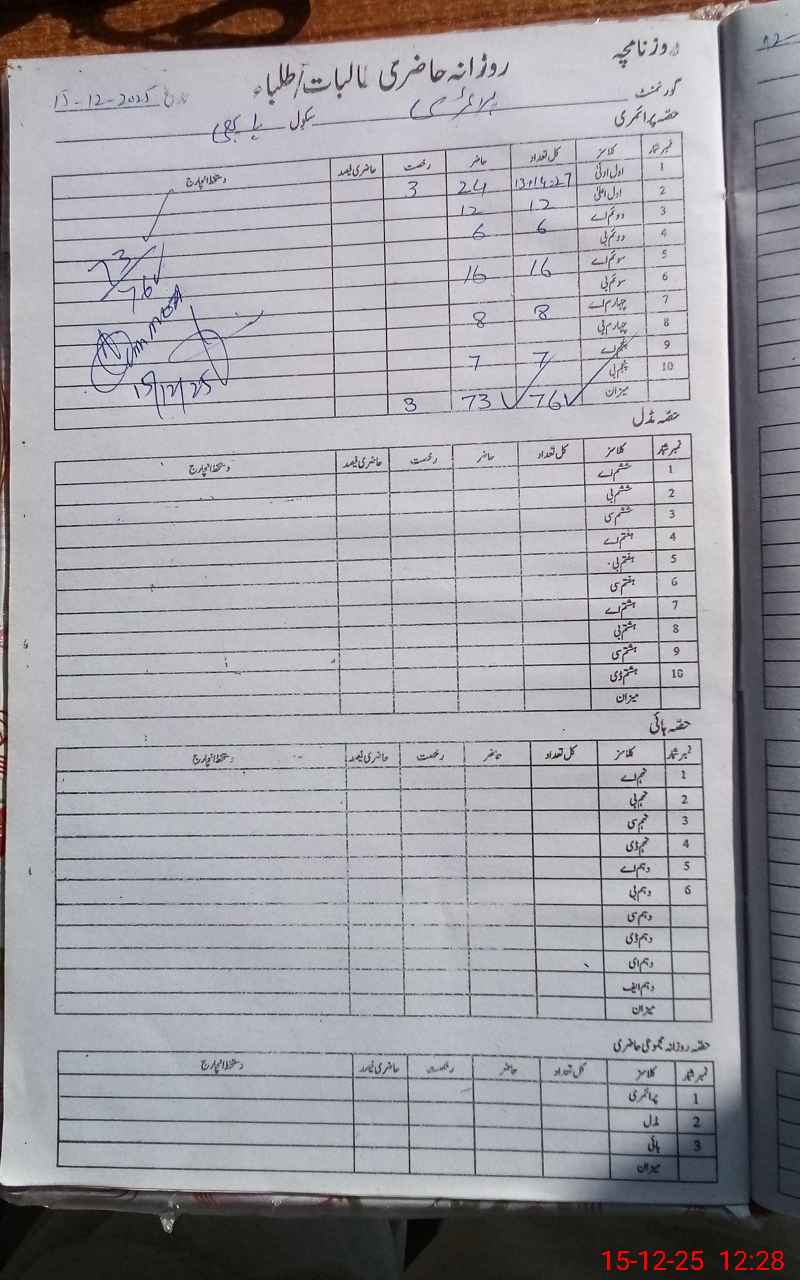 روزنامچہ
روزانہ حاضری طالبات/طلباء
گورنمنٹ پرائمری سکول تاریخ 15-12-2025
حصہ پرائمری
نمبر شمار کلاسز کل تعداد حاضر رخصت حاضری فیصد دستخط انچارج
1 اول ادنیٰ 13+14=27 24 3
2 اول اعلیٰ 12 12
3 دوئم اے 6 6
4 دوئم بی
5 سوئم اے 16 16
6 سوئم بی
7 چہارم اے 8 8
8 چہارم بی
9 پنجم اے 7 7
10 پنجم بی
میزان 76 73 3
73/76
15/12/25
حصہ مڈل
نمبر شمار کلاسز کل تعداد حاضر رخصت حاضری فیصد دستخط انچارج
1 ششم اے
2 ششم بی
3 ششم سی
4 ہفتم اے
5 ہفتم بی
6 ہفتم سی
7 ہشتم اے
8 ہشتم بی
9 ہشتم سی
10 ہشتم ڈی
میزان
حصہ ہائی
نمبر شمار کلاسز کل تعداد حاضر رخصت حاضری فیصد دستخط انچارج
1 نہم اے
2 نہم بی
3 نہم سی
4 نہم ڈی
5 دہم اے
6 دہم بی
دہم سی
دہم ڈی
دہم ای
دہم ایف
میزان
حصہ روزانہ مجموعی حاضری
نمبر شمار کلاسز کل تعداد حاضر رخصت حاضری فیصد دستخط انچارج
1 پرائمری
2 مڈل
3 ہائی
میزان
15-12-25 12:28